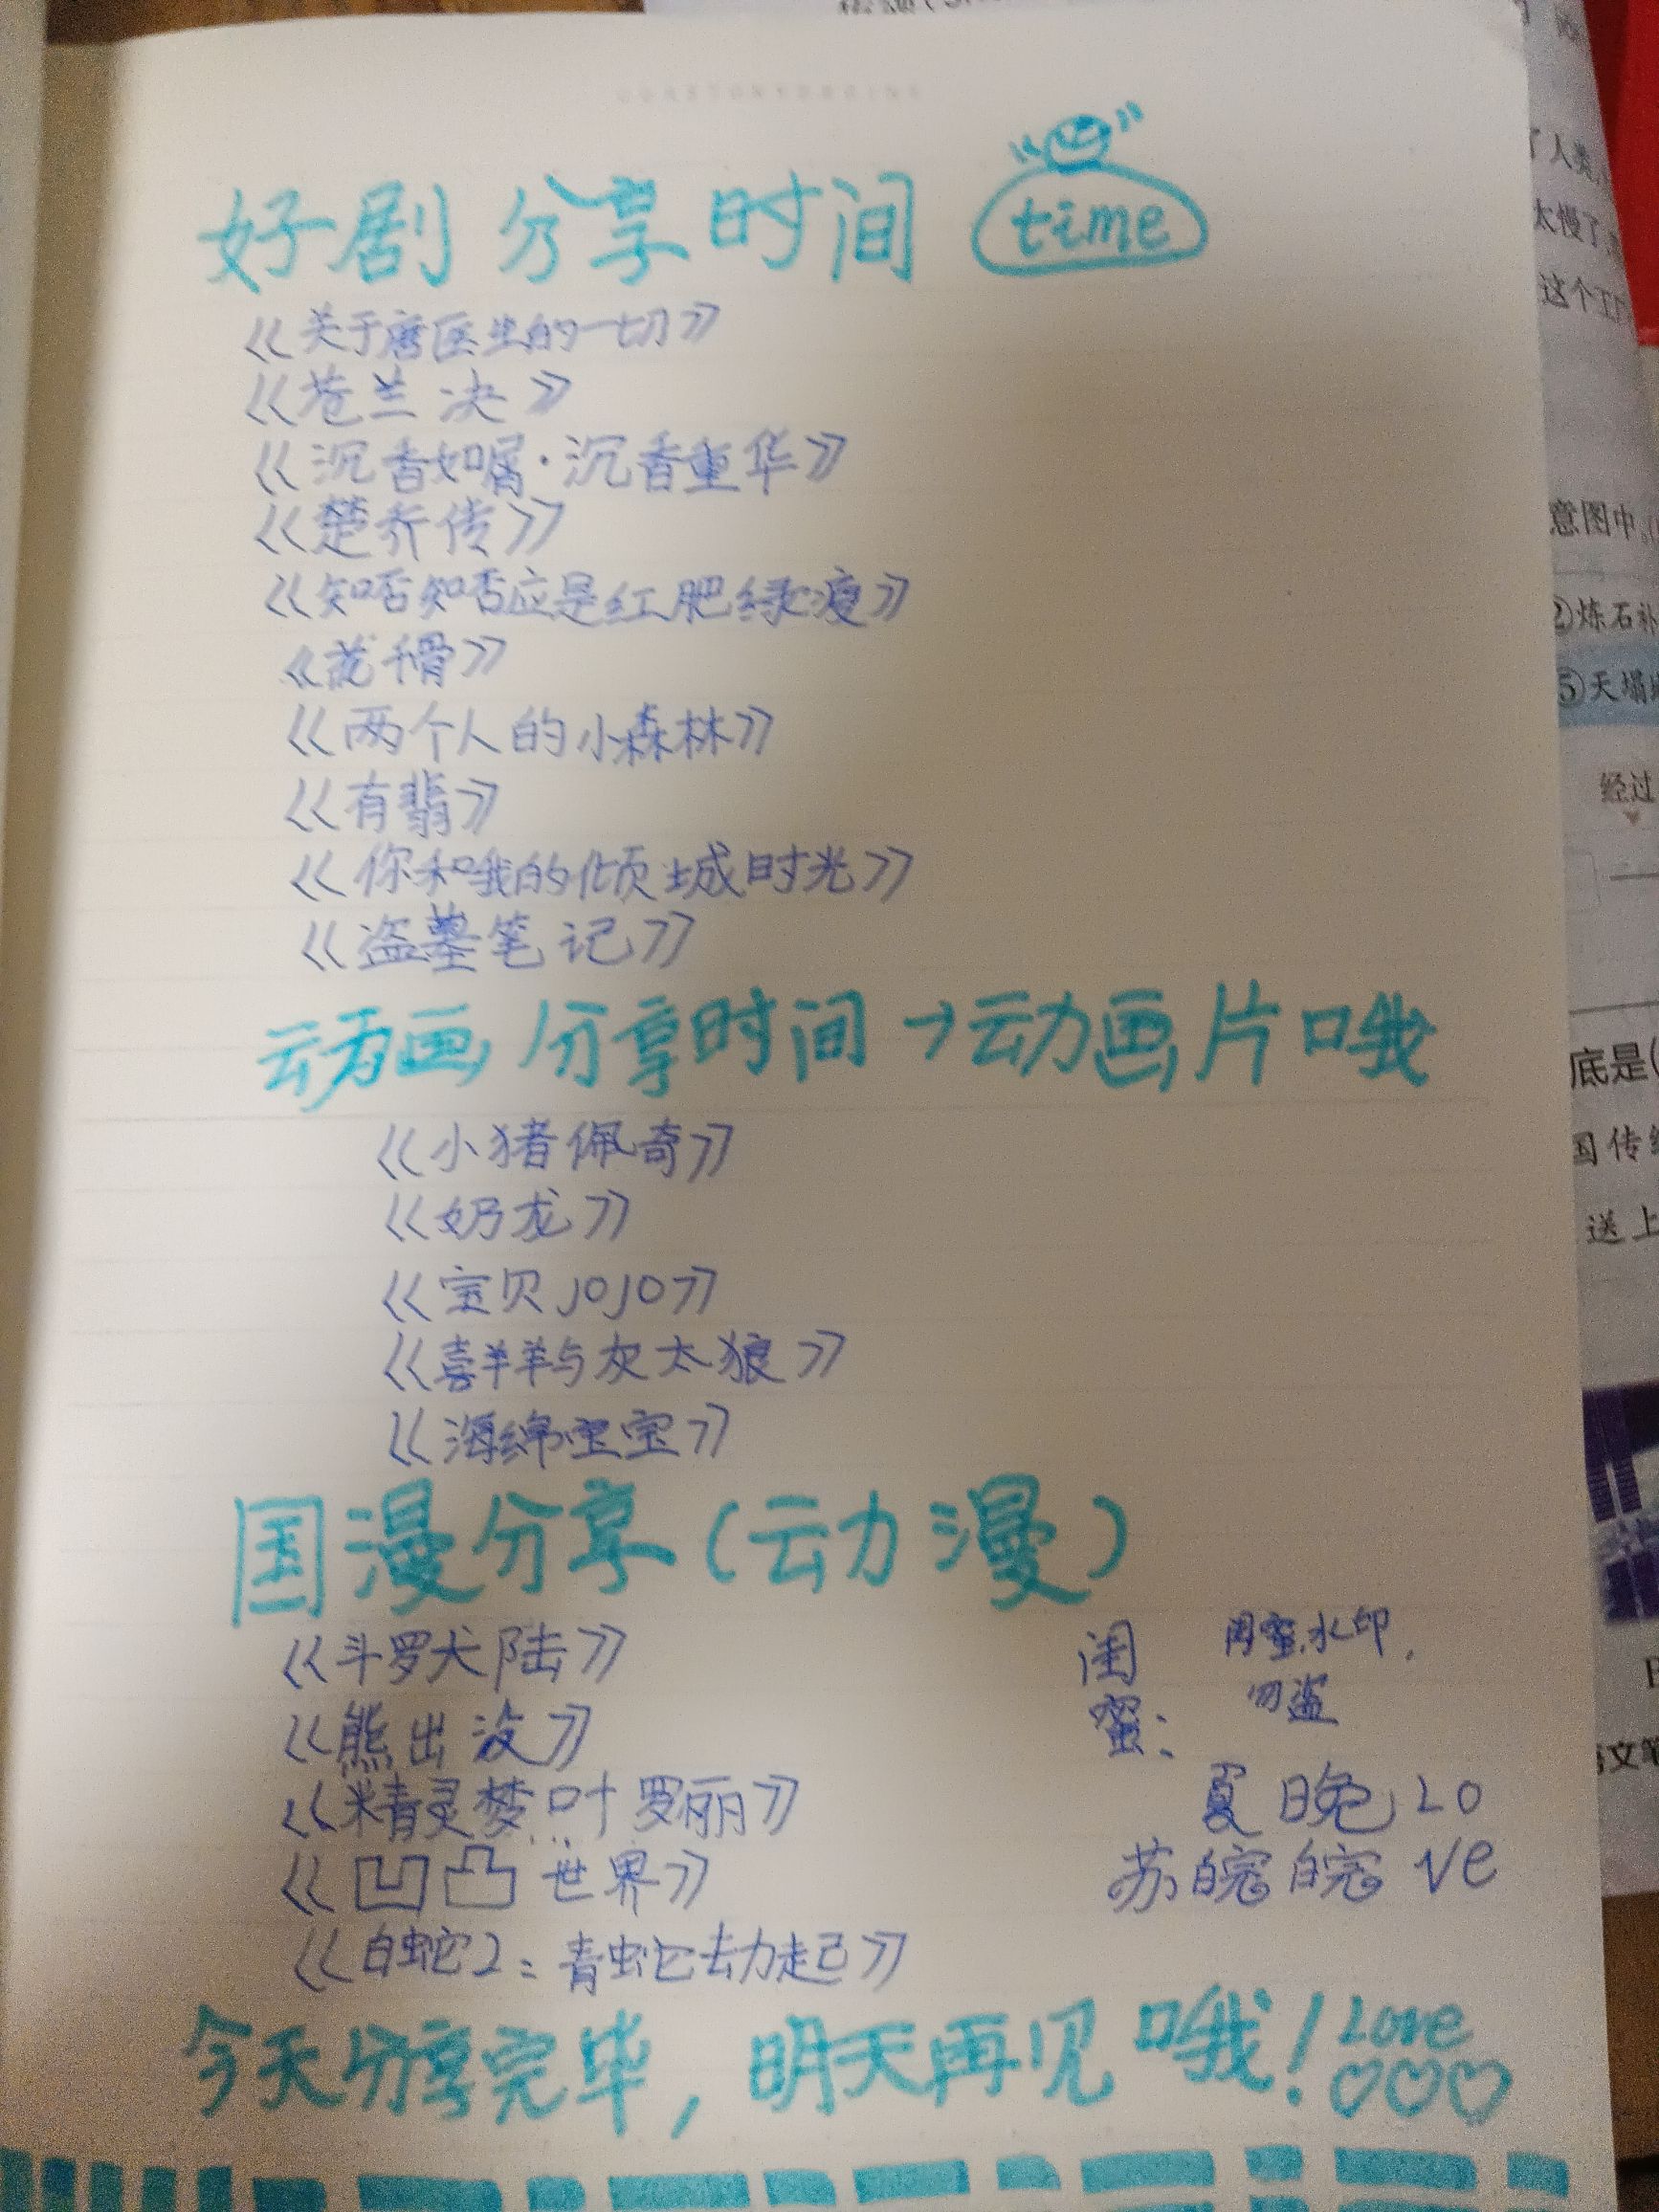 好剧分享时间 time
《关于唐医生的一切》
《苍兰决》
《沉香如屑·沉香重华》
《楚乔传》
《知否知否应是红肥绿瘦》
《花千骨》
《两个人的小森林》
《有翡》
《你和我的倾城时光》
《盗墓笔记》
动画分享时间→动画片哦
《小猪佩奇》
《奶龙》
《宝贝JOJO》
《喜羊羊与灰太狼》
《海绵宝宝》
国漫分享(动漫)
《斗罗大陆》
《熊出没》
《精灵梦叶罗丽》
《凹凸世界》
《白蛇2:青蛇劫起》
闺蜜:
闺蜜水印.
勿盗
夏晚 LO
苏皖皖 ve
今天分享完毕,明天再见哦!Love
了人类
太慢了
这个工
意图中
②炼石补
⑤天塌
经过
底是(
国传
送上
文笔